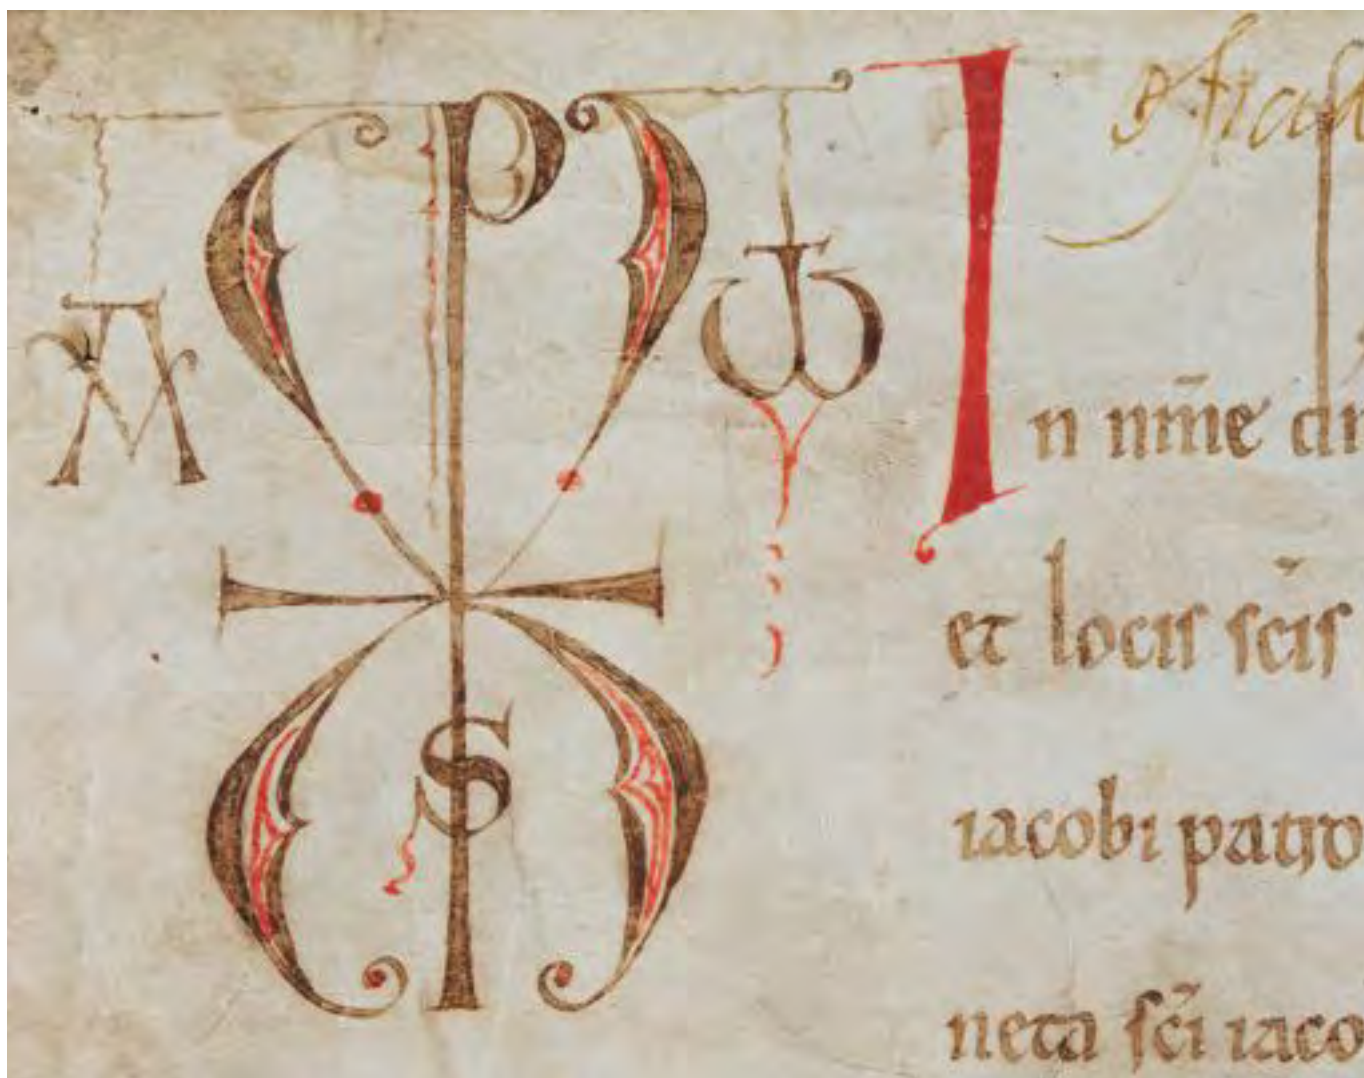 A P ω
S
In nm̃e
et locis sc̃is
iacobi patro
neta sc̃i iaco